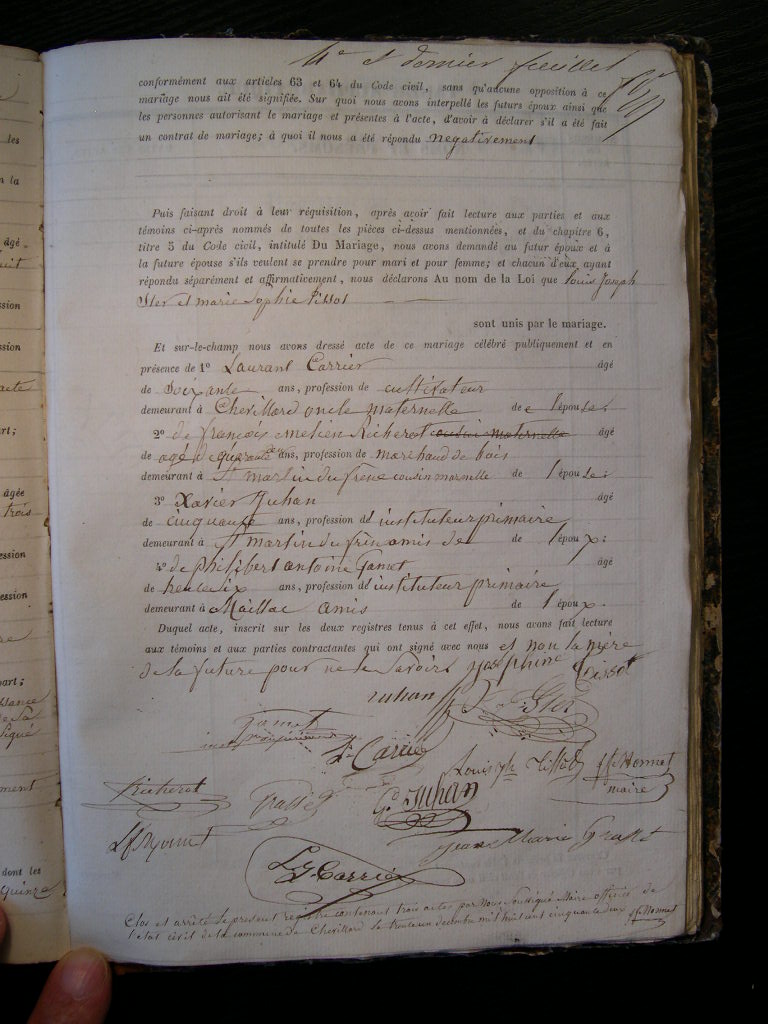 4e et dernier feuillet
conformément aux articles 63 et 64 du Code civil, sans qu'aucune opposition à ce
mariage nous ait été signifiée. Sur quoi nous avons interpellé les futurs époux ainsi que
les personnes autorisant le mariage et présentes à l'acte, d'avoir à déclarer s'il a été fait
un contrat de mariage; à quoi il nous a été répondu negativement
Puis faisant droit à leur réquisition, après avoir fait lecture aux parties et aux
témoins ci-après nommés de toutes les pièces ci-dessus mentionnées, et du chapitre 6,
titre 5 du Code civil, intitulé Du Mariage, nous avons demandé au futur époux et à
la future épouse s'ils veulent se prendre pour mari et pour femme; et chacun d'eux ayant
répondu séparément et affirmativement, nous déclarons Au nom de la Loi que louis Joseph
Ster et marie Sophie tissot
sont unis par le mariage.
Et sur-le-champ nous avons dressé acte de ce mariage célébré publiquement et en
présence de 1° Laurant Carrier âgé
de Soixante ans, profession de cultivateur
demeurant à Chevillard oncle maternelle de l'épouse.
2° de françois Richerot cousin maternelle âgé
de agé de quarante ans, profession de marchaud de bois
demeurant à St martin du frene cousin de l'épouse.
3° Xavier Juhan âgé
de cinquante ans, profession d'instituteur primaire
demeurant à St martin du frên amis de de l'époux.
4° de philibert antoine Gamet âgé
de trente six ans, profession d'instituteur primaire
demeurant à Maillac amis de l'époux.
Duquel acte, inscrit sur les deux registres tenus à cet effet, nous avons fait lecture
aux témoins et aux parties contractantes qui ont signé avec nous et non la mère
de la future pour ne le savoirs josephine Tissot
Juhan J. Ster
Gamet
L. Carrier
Louis jh Tissot jf Honnet
maire
Richerot Juhan
Jean Marie
L J Carrier
Clos et arrêté le present registre contenant trois actes par Nous Soussigné Maire officier de
l'etat civil de la commune de Chevillard le trente un decembre mil huit cent cinquante deux jf Honnet